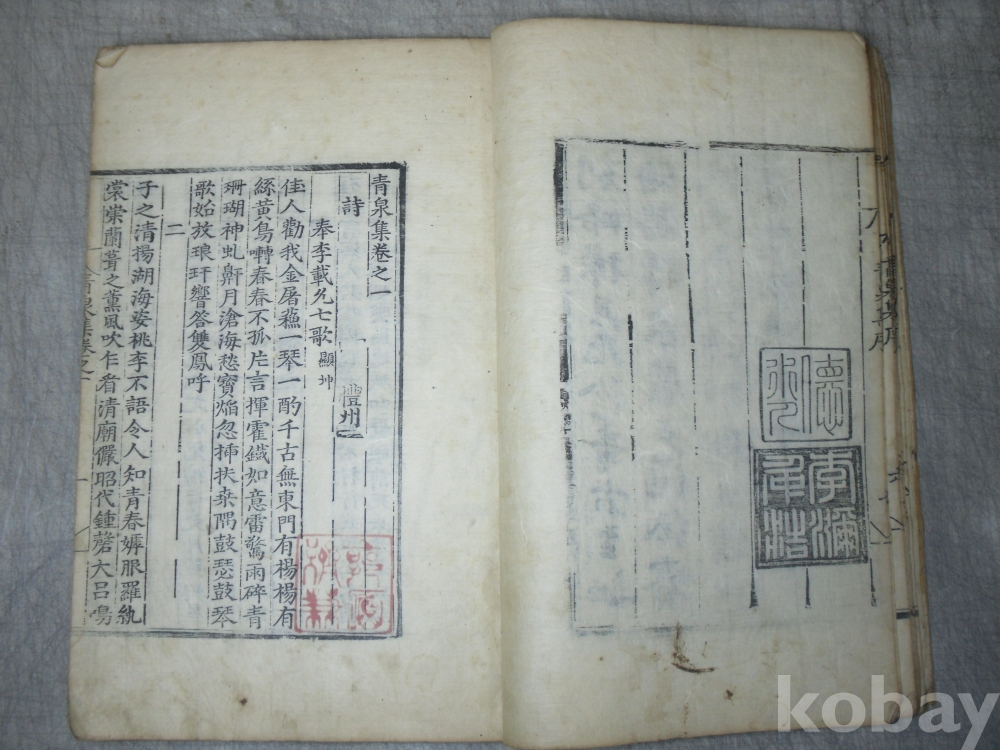 青泉集序
德
李彌
青泉集卷之一
詩
豊州
奉李載允七歌 顯坤
佳人勸我金屠蘓一琴一酌千古無東門有楊楊有
絲黃鳥囀春春不孤片言揮霍鐵如意雷驚雨碎青
珊瑚神虬鼾月滄海愁寶焔忽揷扶桑隅鼓瑟鼓琴
歌始放琅玕響答雙鳳呼
二
子之清揚湖海姿桃李不語令人知青春嫭服羅紈
裳崇蘭葺之薰風吹乍看清廟儼昭代鍾磬大呂
青泉集卷之一
kobay